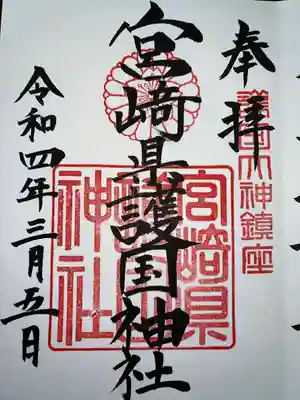 奉拝
護国大神鎮座
宮崎県護国神社
宮崎県護国神社
令和四年三月五日